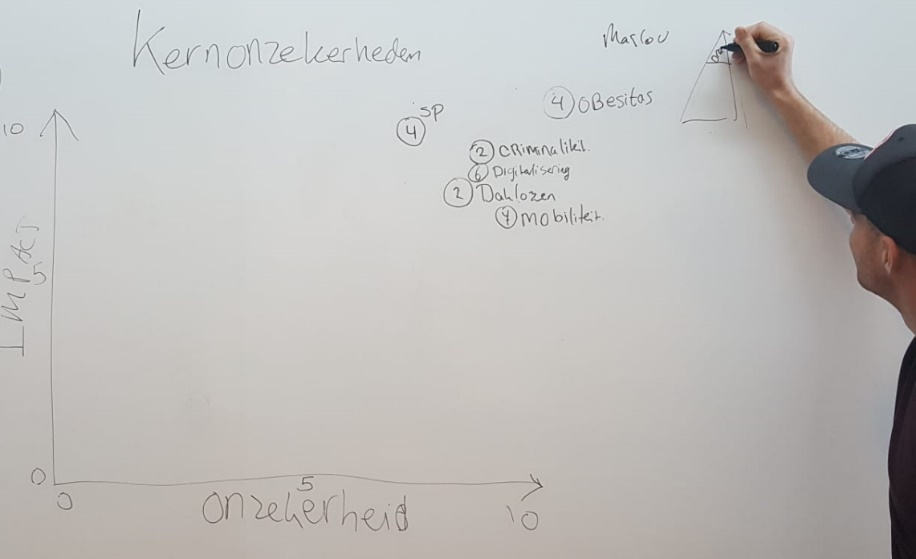 Kernonzekerheden
Maslou
10
SP
4
4 OBesitas
2 CRiminalitet.
6 Digitalisering
2 Daklozen
4 mobiliteit.
IMPACT
5
0
0
5
10
onzekerheid